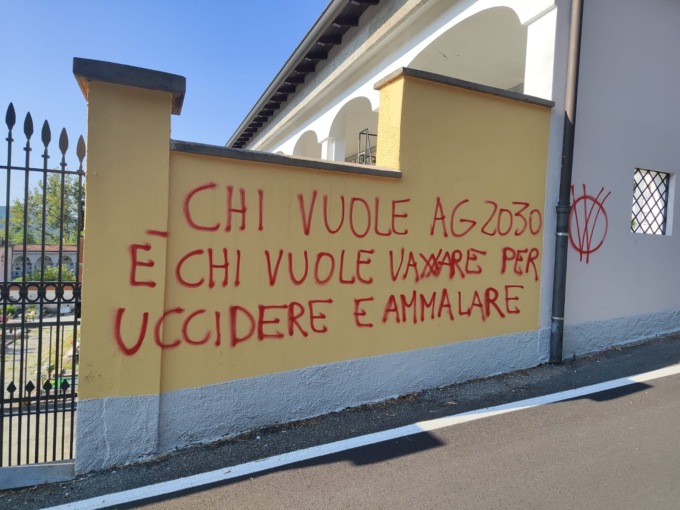 CHI VUOLE AG2030
É CHI VUOLE VAXXARE PER
UCCIDERE E AMMALARE
W